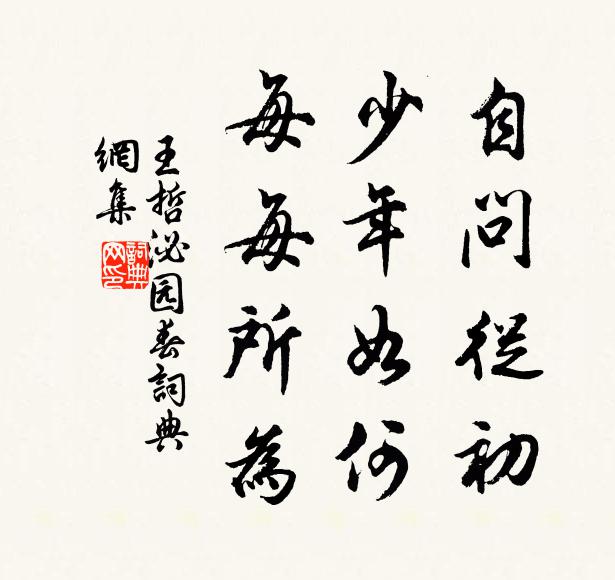 自问從初
少年如何
每每所為
王哲沁园春詞典
網集
詞典
网印